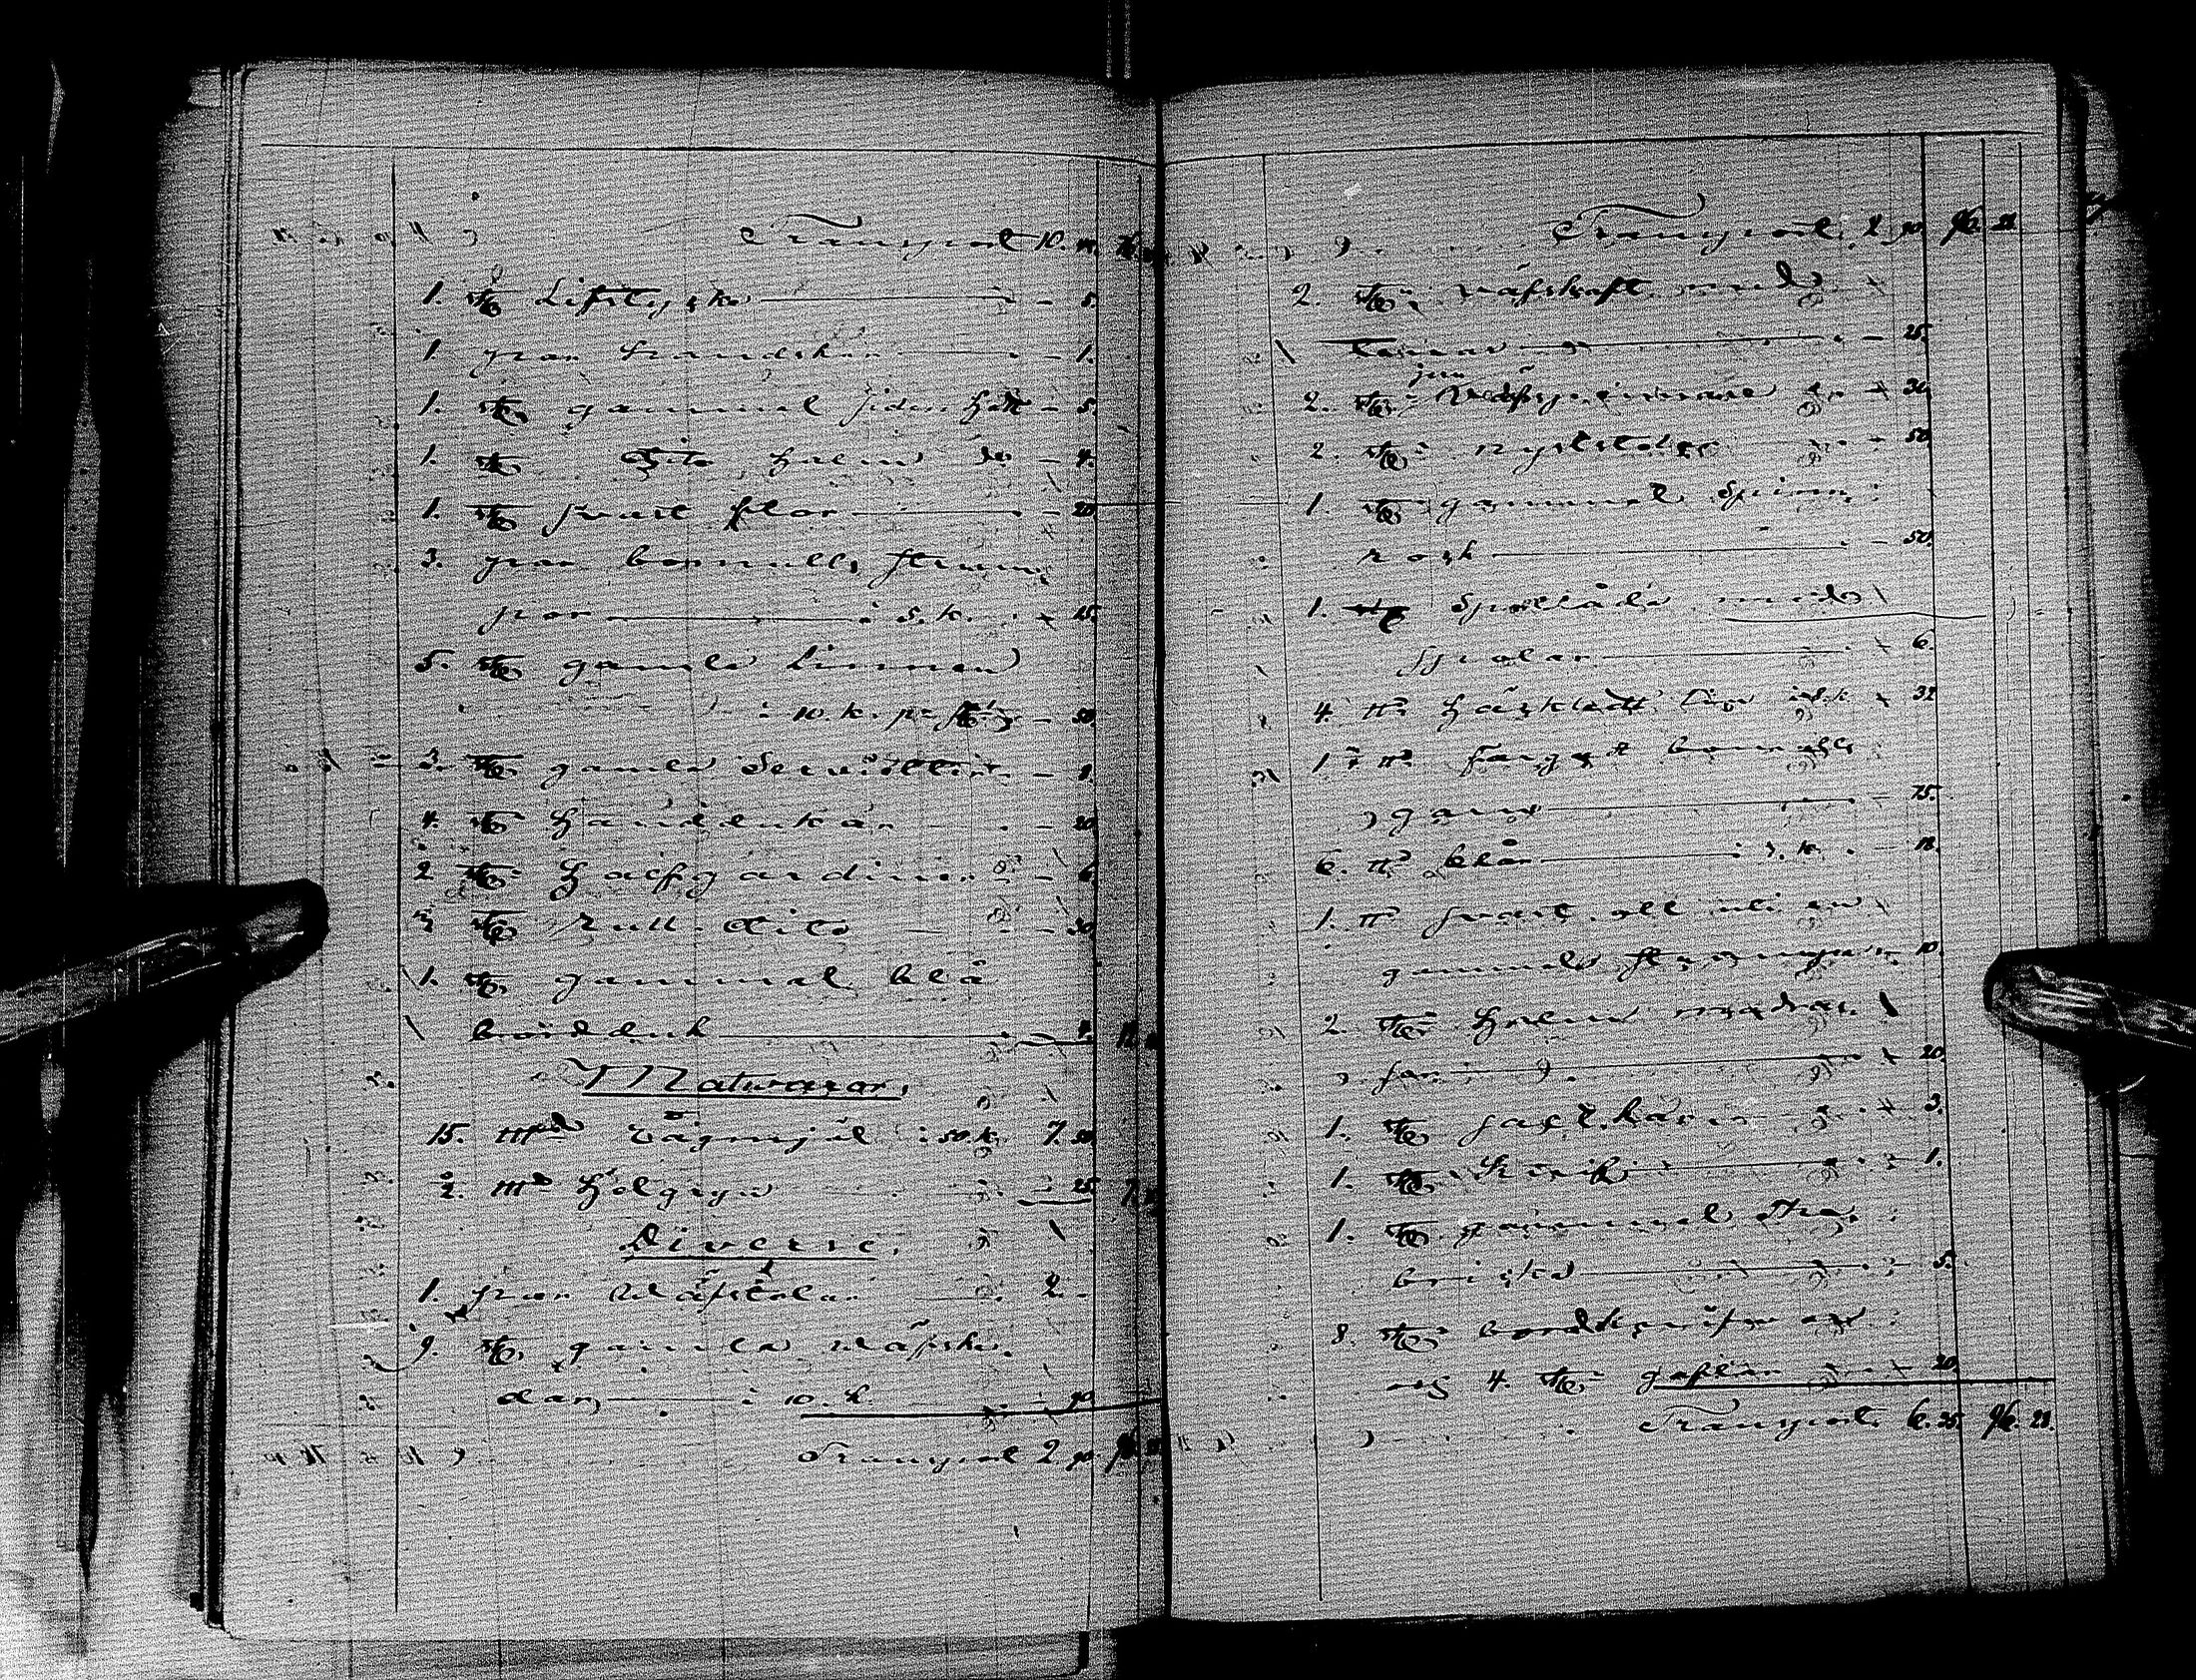 Transport 10.
1. st. Lifstycke — 5.
1 par handskar — 1.
1. st. gammal siden hatt — 5.
1. st. Dito halm do — 4.
1. st. svart flor — 20
3. par bomulls strum
por — à 5. k. — 15.
5. st. gamla Linnen
à 10. k. pr st. — 50
3. st. gamla Servietter — 
4. st. Handdukar — 20
2 st. Halfgardiner — 6
st. Rull. dito — 30
1. st. gammal blå
bordduk —
Matwaror.
15. Rågmjöl à 50 k. 7.50
2. Helgryn — 25
Diverse.
1. par Wäfstolar — 2.
9. st. gamla wäfske
dar, — à 10. k. — 90
Transport 2 90.
Transport. 2 90. 96. 23.
2. st. väfskaft med
— 25.
2. st.
2. st. nystolar — 50
1. st. gammal Spinn
rock — 50.
1. st. Spollåda med
spolar — 6.
4. ℔ Häckladt lin à 8. k. — 32
1 ℔ färgat bomulls
garn — 75.
6. ℔ blår — à 3. k. — 18.
1. ℔ svart ull uti en
gammal strumpa — 10.
2. st. Halm madras
ser — 20.
1. st. saltkar — 3.
1. st. — 1.
1. st. gammal
bricka — 5.
8. st. bordknifvar
och 4. st. gaflar — 20
Transport. 6. 25 96. 23.